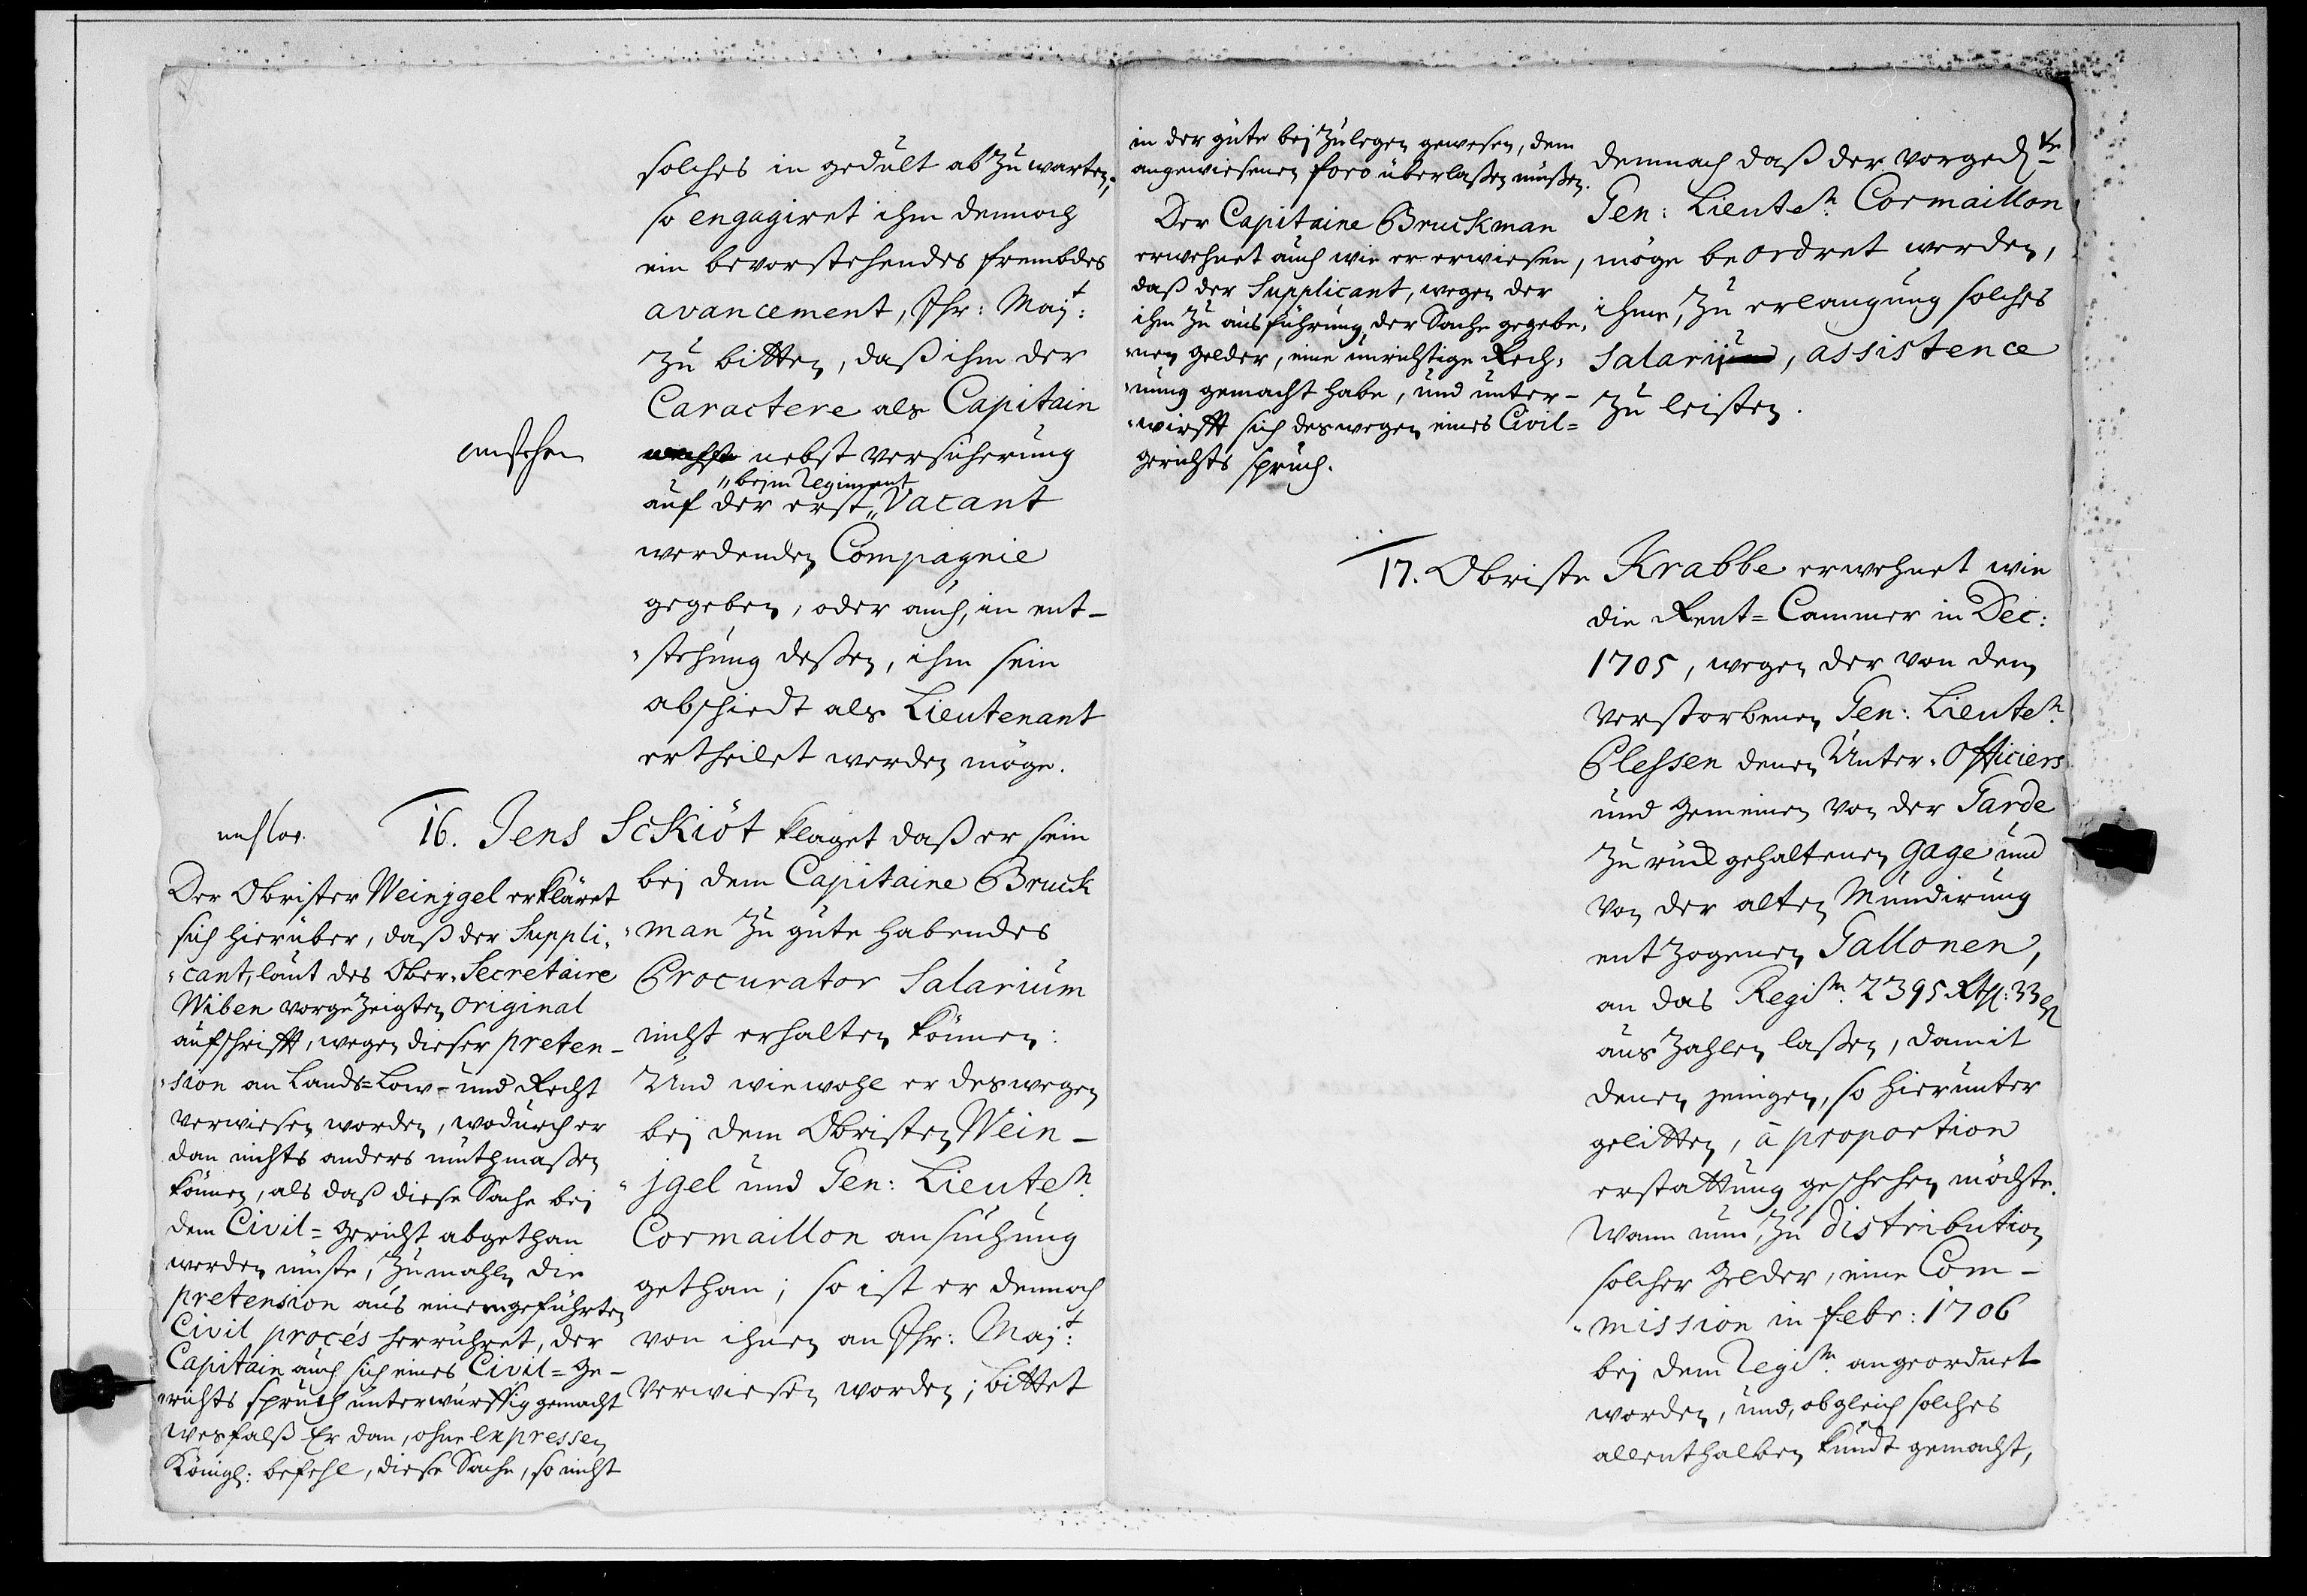 solches in gedult abzuwarten,
so engagiret ihm dennoch
ein bevorstehendes frembdes
avancement, Ihr: Majt:
zu bitten, daß ihm der
Caractere als Capitain
anstehen
nebst versicherung
"beym Regiment
auf der erst "Vacant
werdenden Compagnie
gegeben, oder auch, in ent-
"stehung deßen, ihm sein
abschiedt als Lieutenant
ertheilet werden möge.
16. Jens Sckiöt klaget daß er sein
bej dem Capitaine Bruck
"man zu gute habendes
Procurator Salarium
nicht erhalten können:
Und wiewohl er deswegen
bej dem Obristen Wein-
"jgel und Gen: Lieuten.
Cormaillon ansuchung
gethan; so ist er dennoch
von ihnen an Ihr: Majt:
verwiesen worden; bittet
Der Obrister Weinjgel erkläret
sich hierüber, daß der Suppli,
"cant, laut des Ober-Secretaire
Wiben vorgezeigten original
aufschrifft, wegen dieser preten-
"sion an Lands=Low- und Recht
verwiesen worden, wodurch er
dan nichts anders muthmaßen
können, als daß diese Sache bei
dem Civil=gericht abgethan
werden müste, zumahlen die
pretension aus einem geführten
Civil procés herrühret, der
Capitain auch sich eines Civil=Ge-
"richts spruch unterwürffig gemacht
wesfalß Er dan, ohne expressen
Königl: befehl, diese Sache, so nicht
in der güte bej zulegen gewesen, dem
angewiesenen foro überlaßen müßen.
Der Capitaine Bruckman
erwehnet auch wie er erwiesen,
daß der Supplicant, wegen der
ihm zu ausführung der Sache gegebe,
"nen gelder, eine unrichtige Rech,
"nung gemacht habe, und unter-
"wirfft sich deswegen eines Civil=
gerichts spruch.
demnach daß der vorgedte
Gen: Lieuten. Cormaillon
möge beordret werden,
ihme, zu erlangung solches
Salarij, assistence
zu leisten.
17. Obriste Krabbe erwehnet wie
die Rent=Cammer in Dec:
1705, wegen der von dem
verstorbenen Gen: Lieuten.
Plessen denen Unter-Officiers
und Gemeinen von der Garde
zurück gehaltenen gage und
von der alten Mundirung
entzogenen Gallonen,
an das Regim. 2395 Rthl: 33 ß
auszahlen laßen, damit
denen jenigen, so hierunter
gelitten, à proportion
erstattung geschehen möchte.
Wann nun, zu distribution
solcher gelder, eine Com-
"mission in febr: 1706
bej dem Regim. angeordnet
worden, und, obgleich solches
allenthalben kundt gemacht,